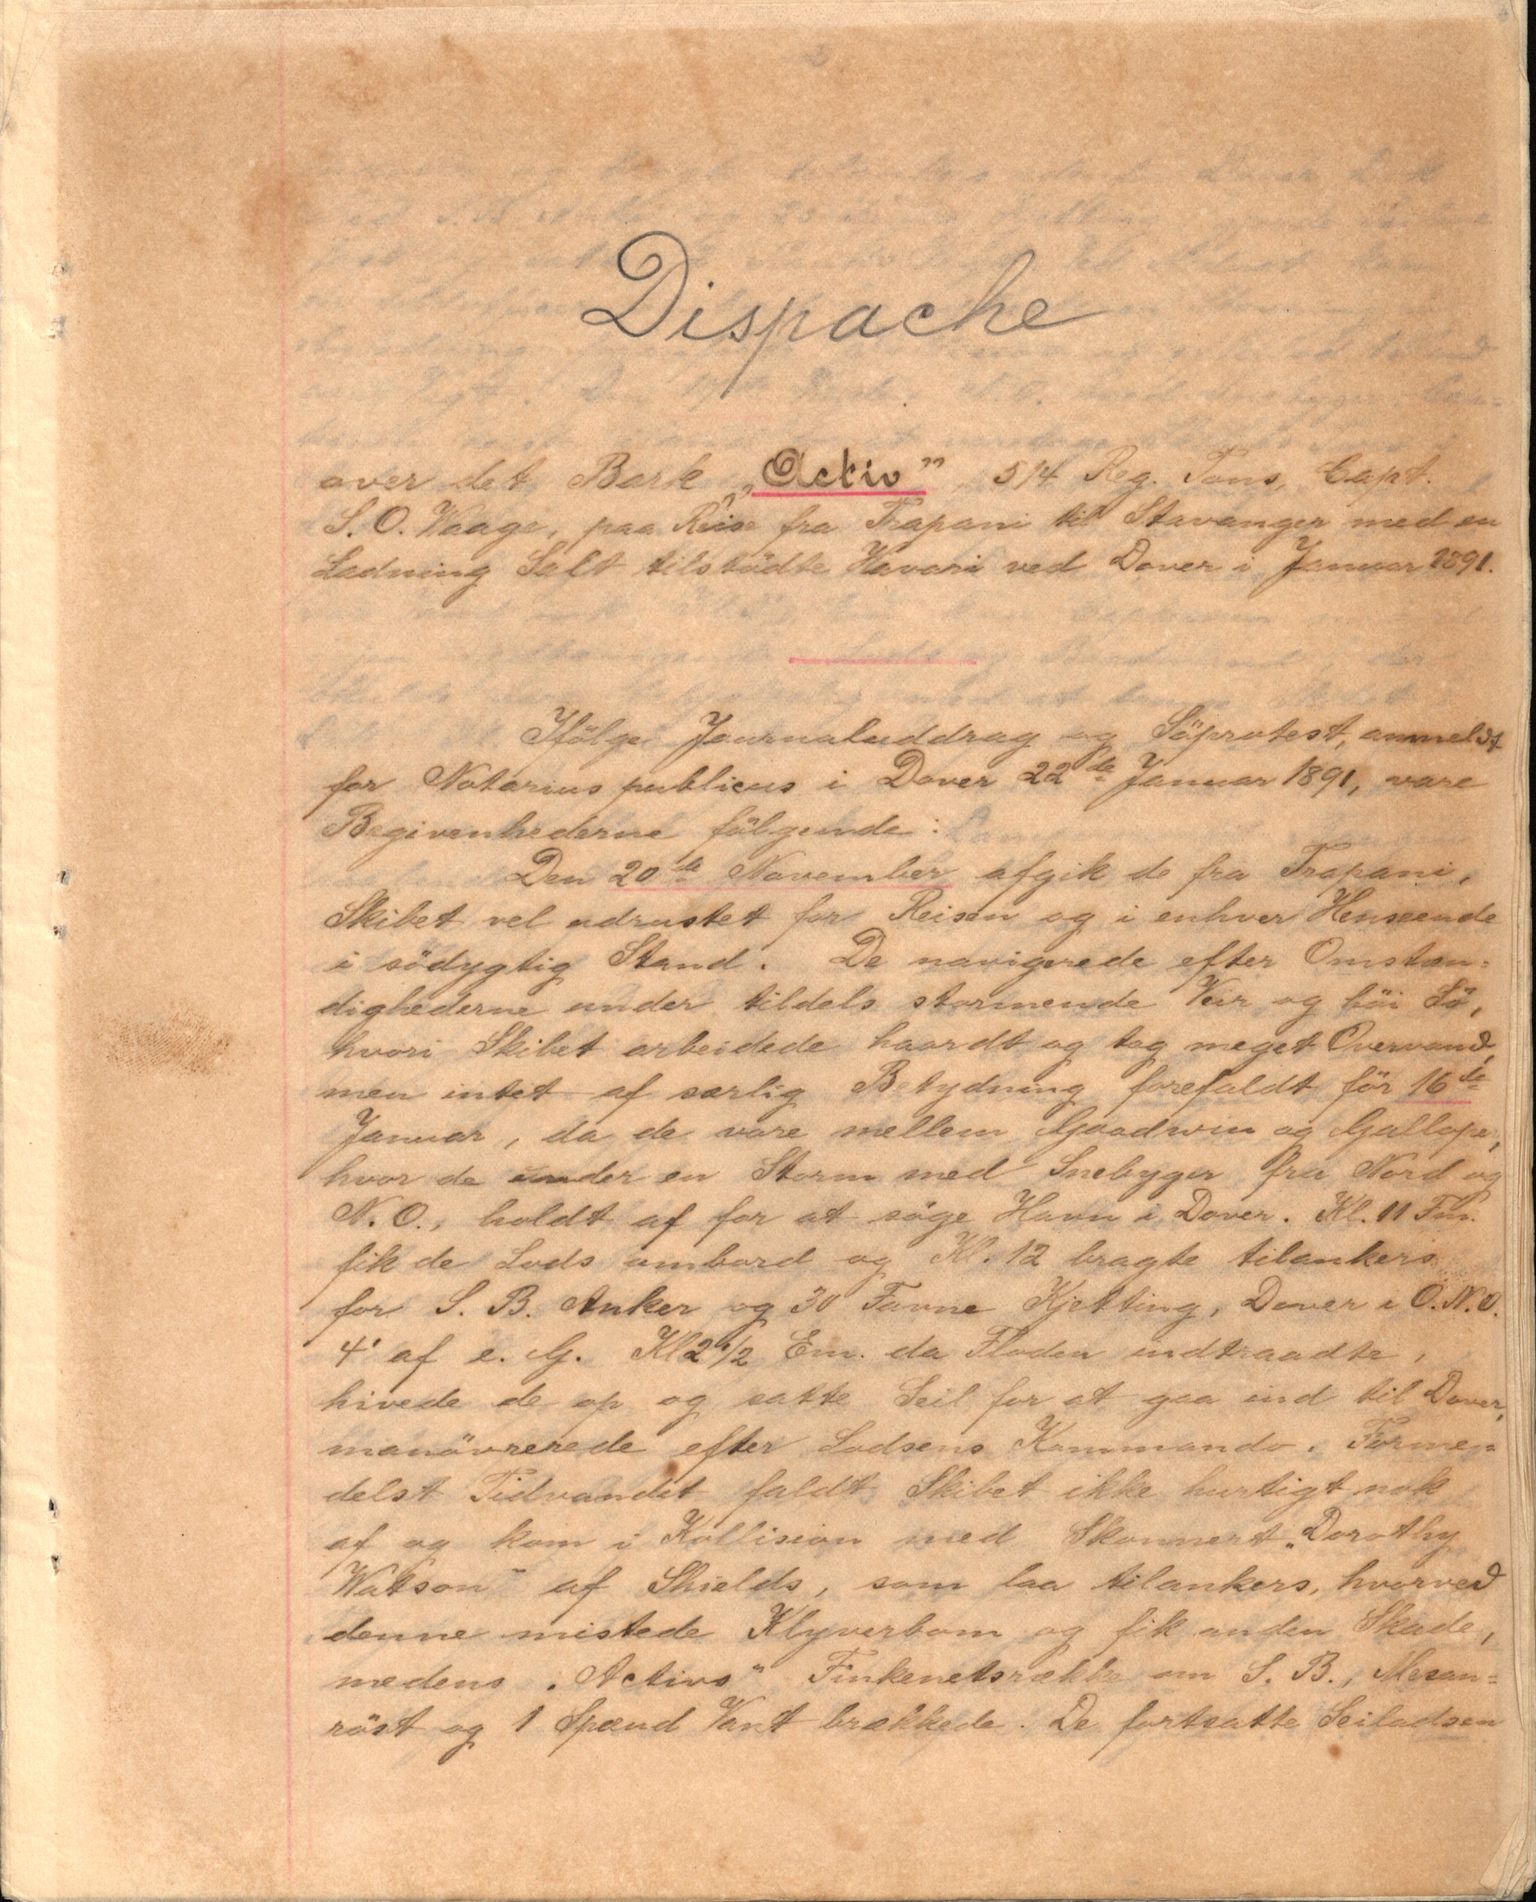 Dispache
over det Bark „Activ”, 514 Reg. Tons, Capt.
S. O. Waage, paa Reise fra Trapani til Stavanger med en
Ladning Salt tilstödte Havari ved Dover i Januar 1891.
Ifölge Journaluddrag og Söprotest, anmeldt
for Notarius publicus i Dover 22de Januar 1891, vare
Begivenhederne fölgende:
Den 20de November afgik de fra Trapani,
Skibet vel udrustet for Reisen og i enhver Henseende
i södygtig Stand. De navigerede efter Omstæn-
dighederne under tildels stormende Veir og höi Sö,
hvori Skibet arbeidede haardt og tog meget Overvand,
men intet af særlig Betydning forefaldt för 16de
Januar, da de vare mellem Goodwin og Galloper,
hvor de under en Storm med Snebyger fra Nord og
N. O., holdt af for at söge Havn i Dover. Kl. 11 Fm.
fik de Lods ombord og Kl. 12 bragte tilankers
for S. B. Anker og 30 Favne Kjetting, Dover i O.N.O.
4' af e. G. Kl 2 1/2 Em. da Floden indtraadte,
hivede de op og satte Seil for at gaa ind til Dover,
manövrerede efter Lodsens Kommando. Forme-
delst Tidvandet faldt Skibet ikke hurtigt nok
af og kom i Kollision med Skonnert „Dorothy
Watson” af Shields, som laa tilankers, hvorved
denne mistede Klyverbom og fik anden Skade,
medens „Activs” Finkenetsrække om S. B., Mesan-
röst og 1 Spænd Vant brækkede. De fortsatte Seiladsen